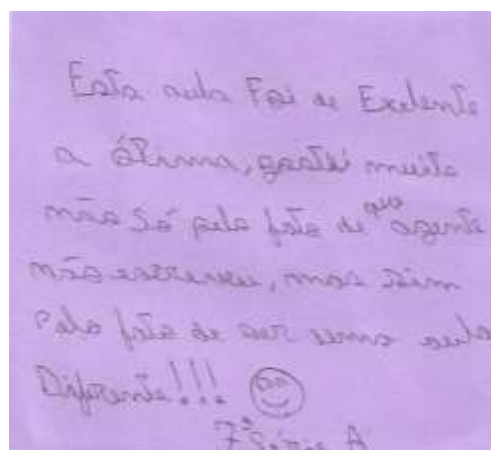 Esta aula Foi de Exelente
a ótima, gostei muito
não só pelo fato de que agente
não escreveu, mas sim
Pelo fato de ser uma aula
Diferente!!!
7ª Série A